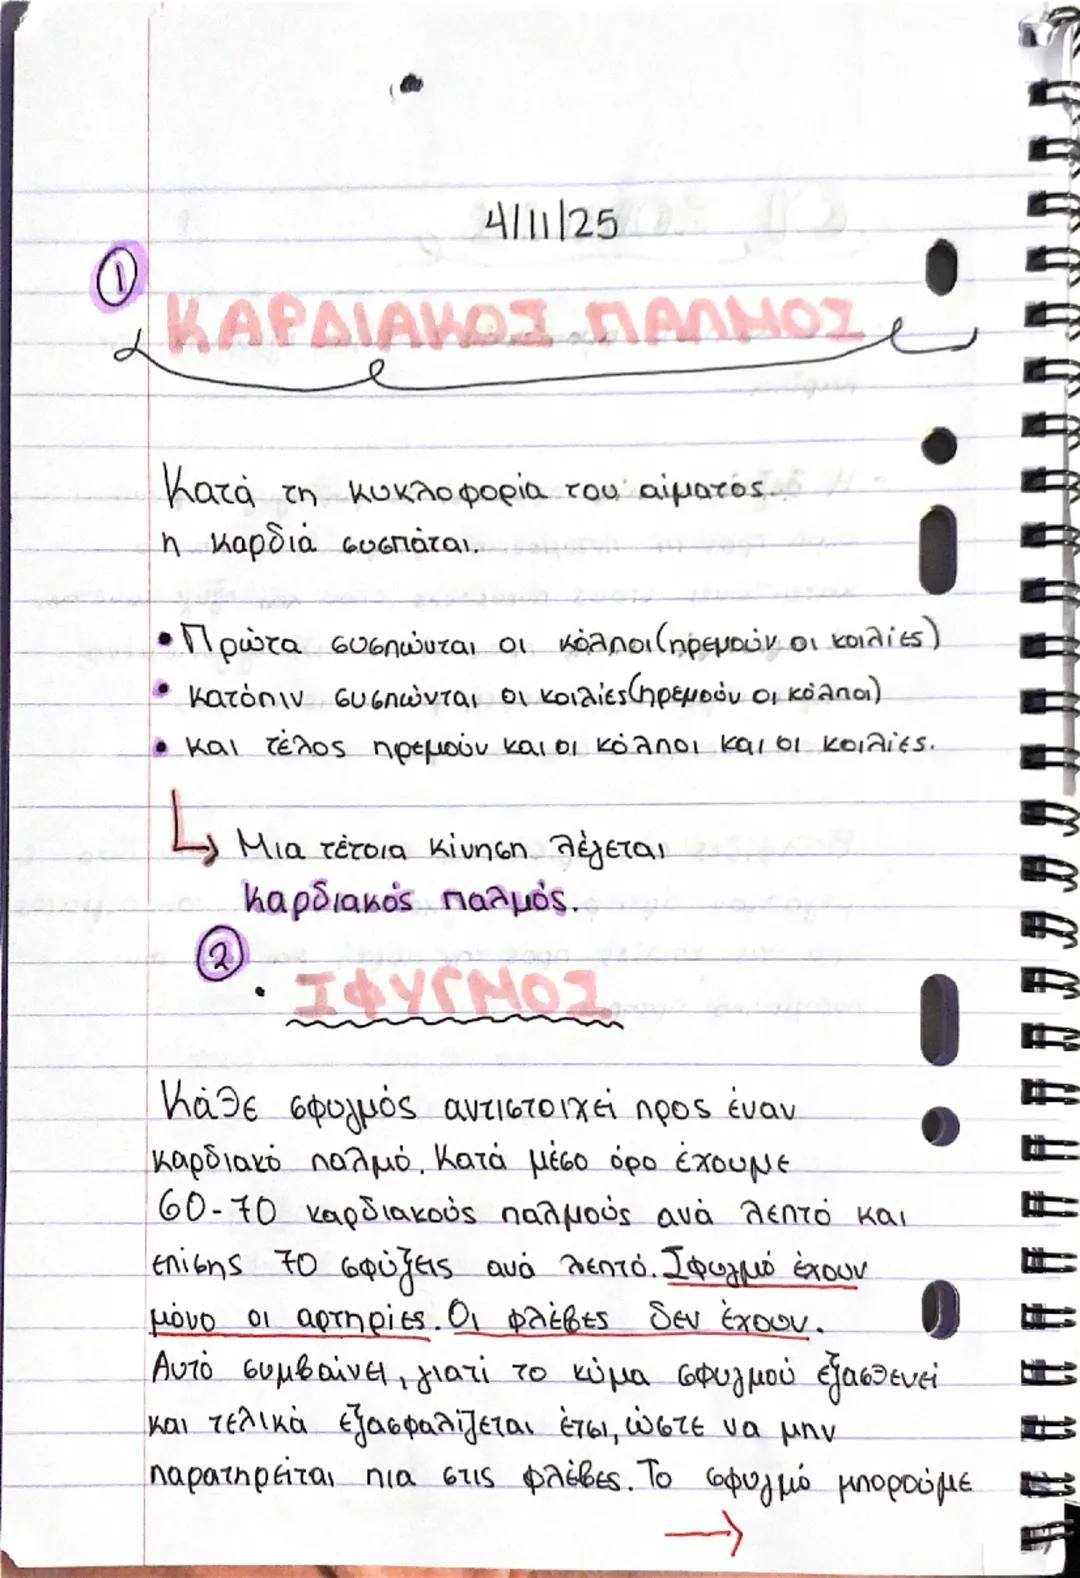 4/11/25
①
ΚΑΡΔΙΑΚΟΣ ΠΑΛΜΟΣ
Κατά τη κυκλοφορία του αίματος
η καρδιά συσπάται.
• Πρώτα συσπώνται οι κόλποι (ηρεμούν οι κοιλίες)
• κατόπιν συσπώνται οι κοιλίες (ηρεμούν οι κόλποι)
• και τέλος ηρεμούν και οι κόλποι και οι κοιλίες.
↳ Μια τέτοια κίνηση λέγεται
καρδιακός παλμός.
②
• ΣΦΥΓΜΟΣ
Κάθε σφυγμός αντιστοιχεί προς έναν
καρδιακό παλμό. Κατά μέσο όρο έχουμε
60-70 καρδιακούς παλμούς ανά λεπτό και
επίσης 70 σφύξεις ανά λεπτό. Σφυγμό έχουν
μόνο οι αρτηρίες. Οι φλέβες δεν έχουν.
Αυτό συμβαίνει, γιατί το κύμα σφυγμού εξασθενεί
και τελικά εξασφαλίζεται έτσι, ώστε να μην
παρατηρείται πια στις φλέβες. Το σφυγμό μπορούμε
→